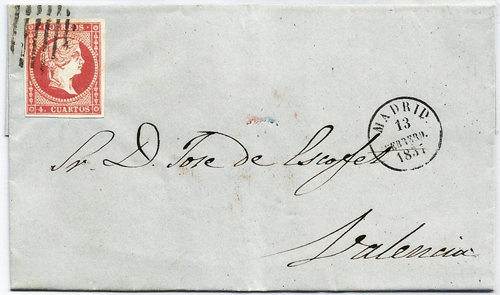 CORREOS
4 CUARTOS
MADRID
13
FEBRERO.
1857
Sr. D. Jose de Escofet
Valencia